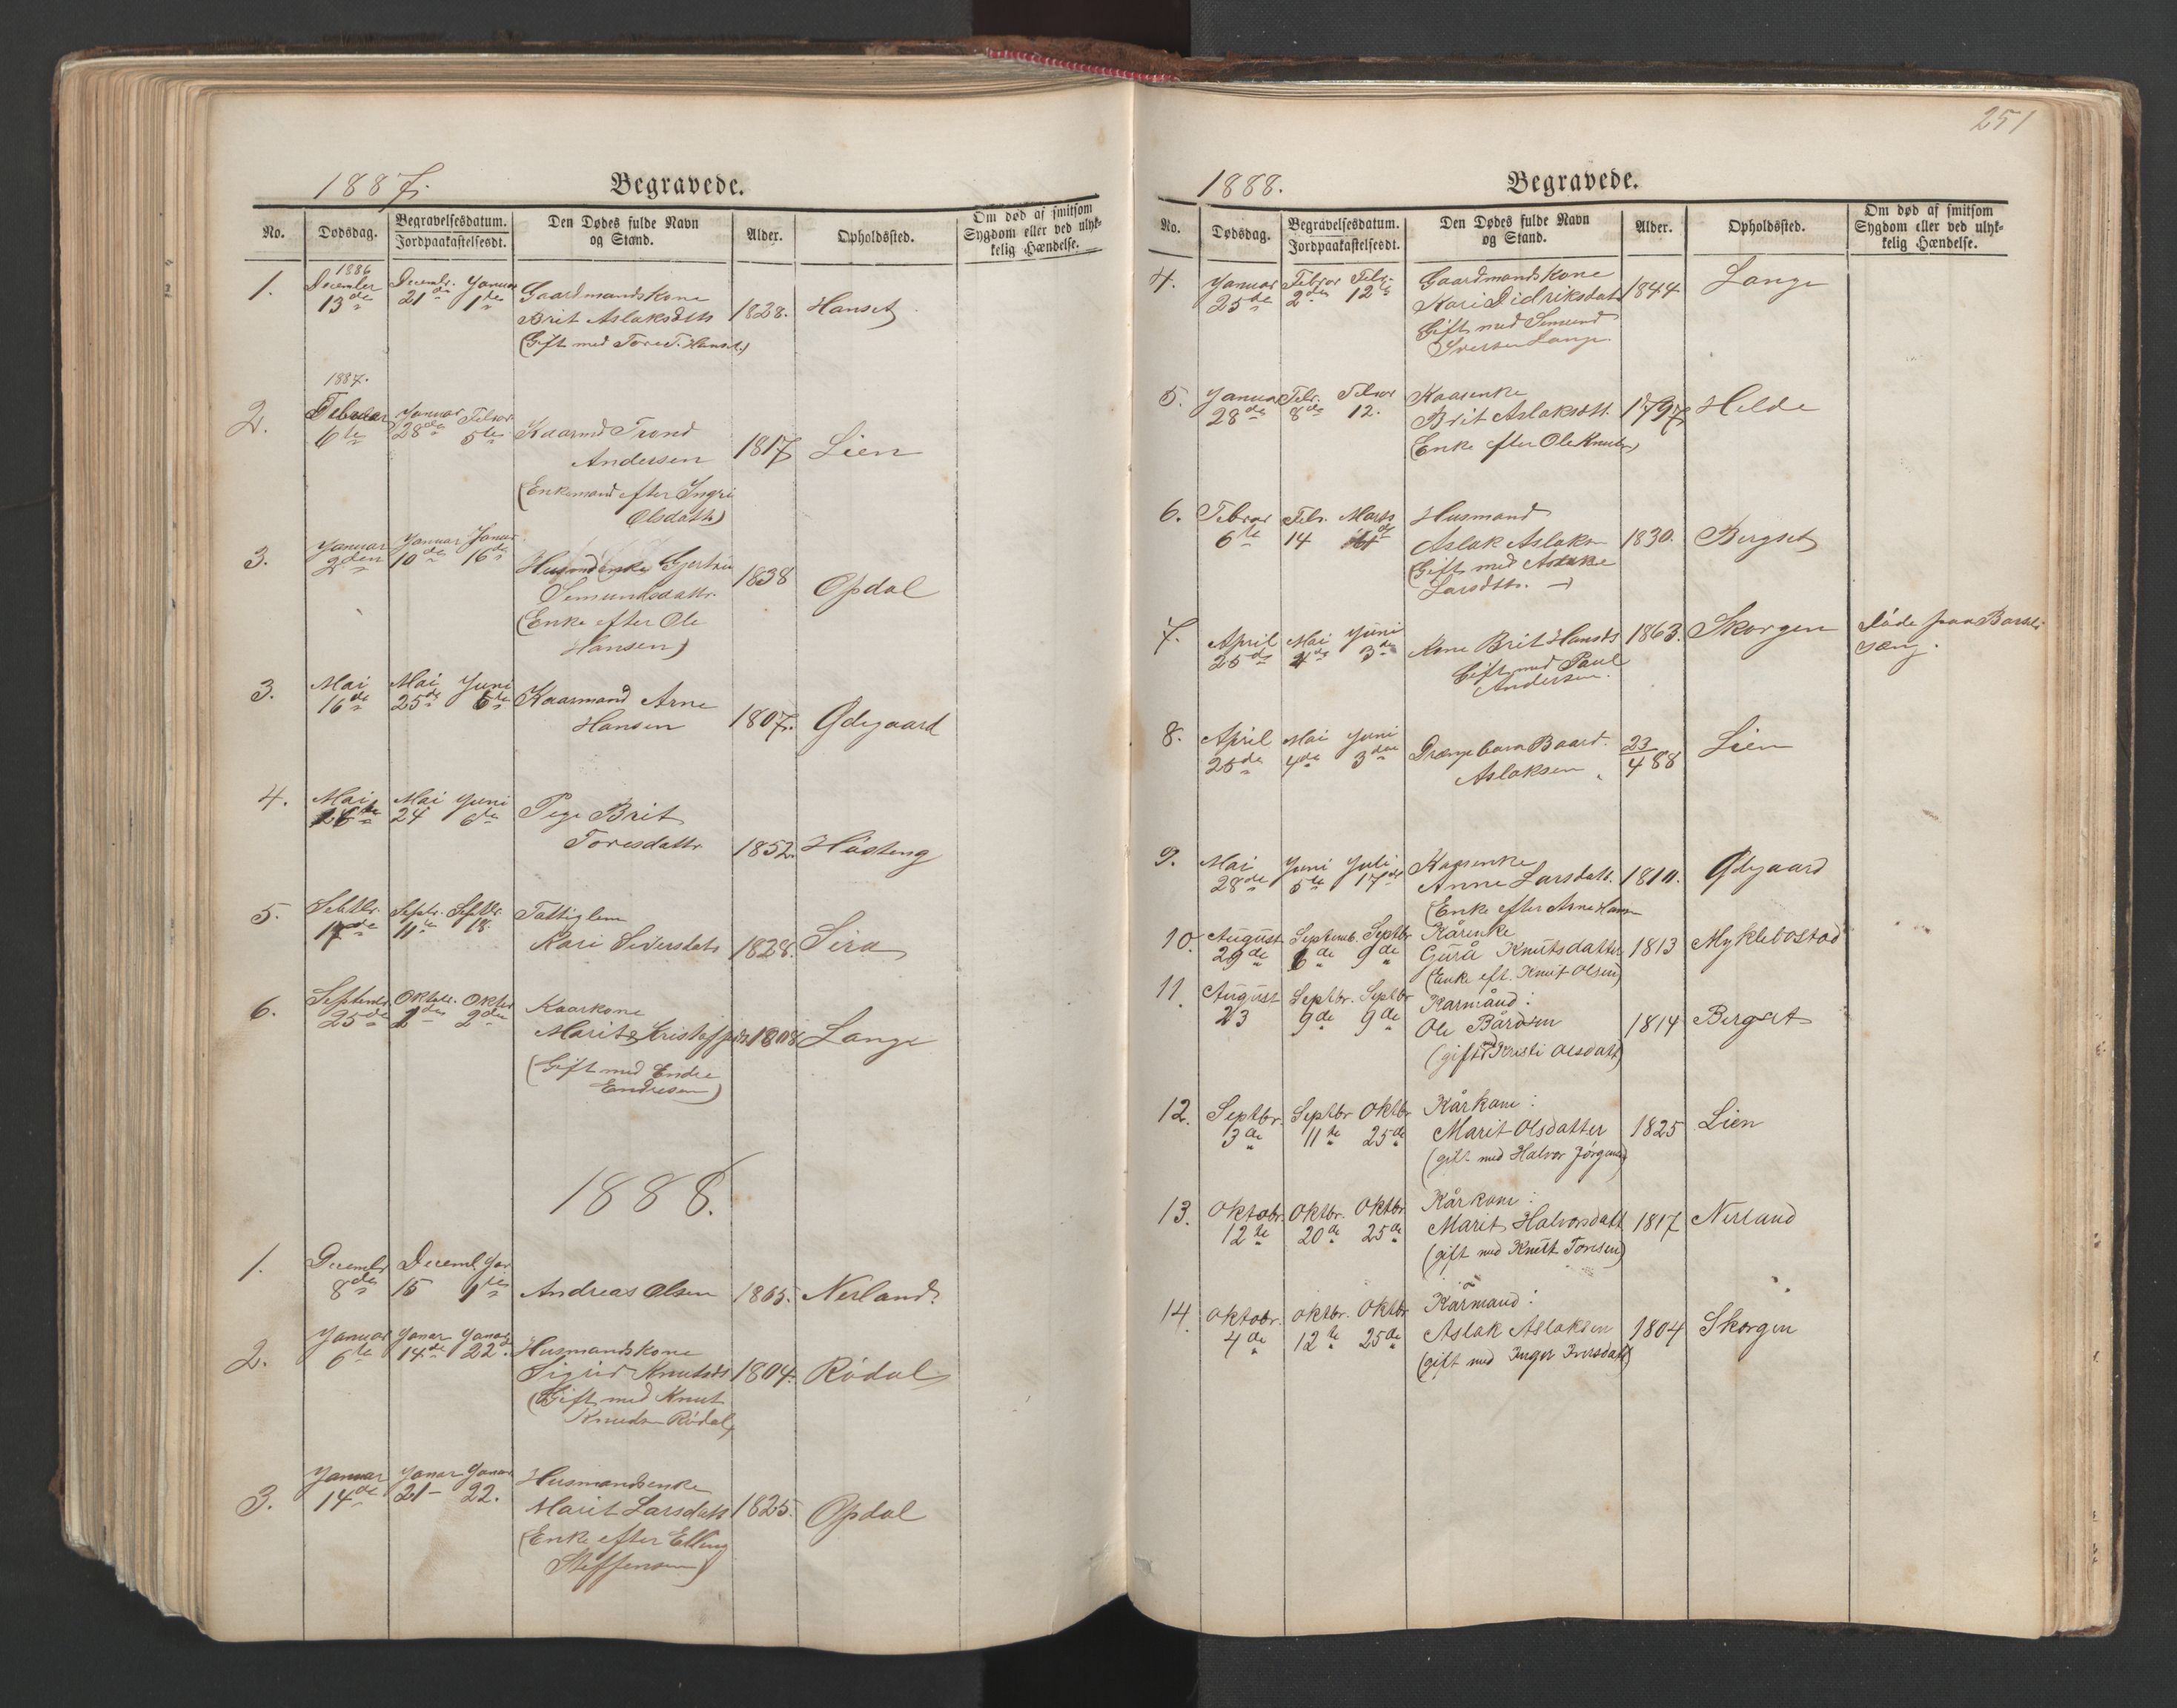 1887. Begravede.
No. Dødsdag. Begravelsesdatum. Jordpaakastelsesdt. Den Dødes fulde Navn og Stand. Alder. Opholdssted. Om død af smitsom Sygdom eller ved ulykkelig Hændelse.
1. 1886 December 13de Decembr. 21de Januar 1de Gaardmandskone
Brit Aslaksdtts 1828. Hanset
(Gift med Tore T. Hanset)
1887.
2. Februar 6te Januar 28de Febror 5te Kaarmd Trond
Andersen 1817 Lien
(Enkemand efter Ingri
Olsdatts)
3. Januar 2den Januar 10de Januar 16de Husmdenke Gjertru
Semundsdattr. 1838 Opdal
(Enke efter Ole
Hansen)
3. Mai 16de Mai 25de Juni 6te Kaarmand Arne
Hansen 1807. Ødegaard
4. Mai 16de Mai 24 Juni 6te Pige Brit
Toresdattr 1852. Håsteng
5. Septbr. 17de Septr. 11te Septbr. 18. Fattiglem
Kari Siversdats 1828. Sira
6. Septembr. 25de Oktobr. 2den Oktbr 2den Kaarkone
Marit Kristofferds 1808 Lange
(Gift med Endre
Endresen)
1888.
1. Decembr 8de Decembr 15 Jan. 1te Andreas Olsen 1865. Nerland.
2. Januar 6te Januar 14de Januar 22. Husmandskone
Sigrid Knutsds 1804. Rödal
(Gift med Knut
Knudsen Rödal)
3. Januar 14de Januar 21 Januar 22. Husmandsenke
Marit Larsdatts 1825. Opdal
(Enke efter Elling
Steffensen)
251
1888. Begravede.
No. Dødsdag. Begravelsesdatum. Jordpaakastelsesdt. Den Dødes fulde Navn og Stand. Alder. Opholdssted. Om død af smitsom Sygdom eller ved ulykkelig Hændelse.
4. Januar 25de Febror 2den Febr. 12te Gaardmandskone
Kari Didriksdat 1844 Lange
Gift med Semund
Iversen Lange
5. Januar 28de Febr. 8de Febror 12. Kaarenke
Brit Aslaksdtt. 1797 Helde
(Enke efter Ole Knuts)
6. Febror 6te Febr. 14 Marts Husmand
Aslak Aslaksn 1830. Bergset
(Gift med
Larsdtts.)
7. April 25de Mai 4de Juni 3de Kone Brit Hansds 1863. Skorgen Døde paa Barsel
Gift med Paul sæng.
Andersen.
8. April 25de Mai 4de Juni 3die Drængebarn Baard. 23/4 88 Lien
Aslaksen
9. Mai 28de Juni 5te Juli 17de Kaarenke
Anne Larsdatt. 1810. Ødegaard
(Enke efter Arne Hansn
10. August 29de Septemb. 6de Septbr 9de Kårenke
Gurå Knutsdatter 1813 Myklebostad
(Enke eft. Knut Olsen)
11. August 23 Septbr. 9de Septbr 9de Karmånd:
Ole Bårdsen 1814 Bergset
(gift med Kristi Olsdatt)
12. Septbr. 3de Septbr 11te Oktbr 25de Kårkone:
Marit Olsdatter 1825 Lien
(gift med Halvor Jörgens)
13. Oktobr. 12te Oktbr. 20de Oktbr 25de Kårkone:
Marit Halvorsdatt 1817 Nerland
(gift med Knut Toresen)
14. Oktobr. 4de Oktbr. 12te Oktbr 25de Kårmand:
Aslak Aslaksen 1804 Skorgen
(gift med Inger Iversdatt)